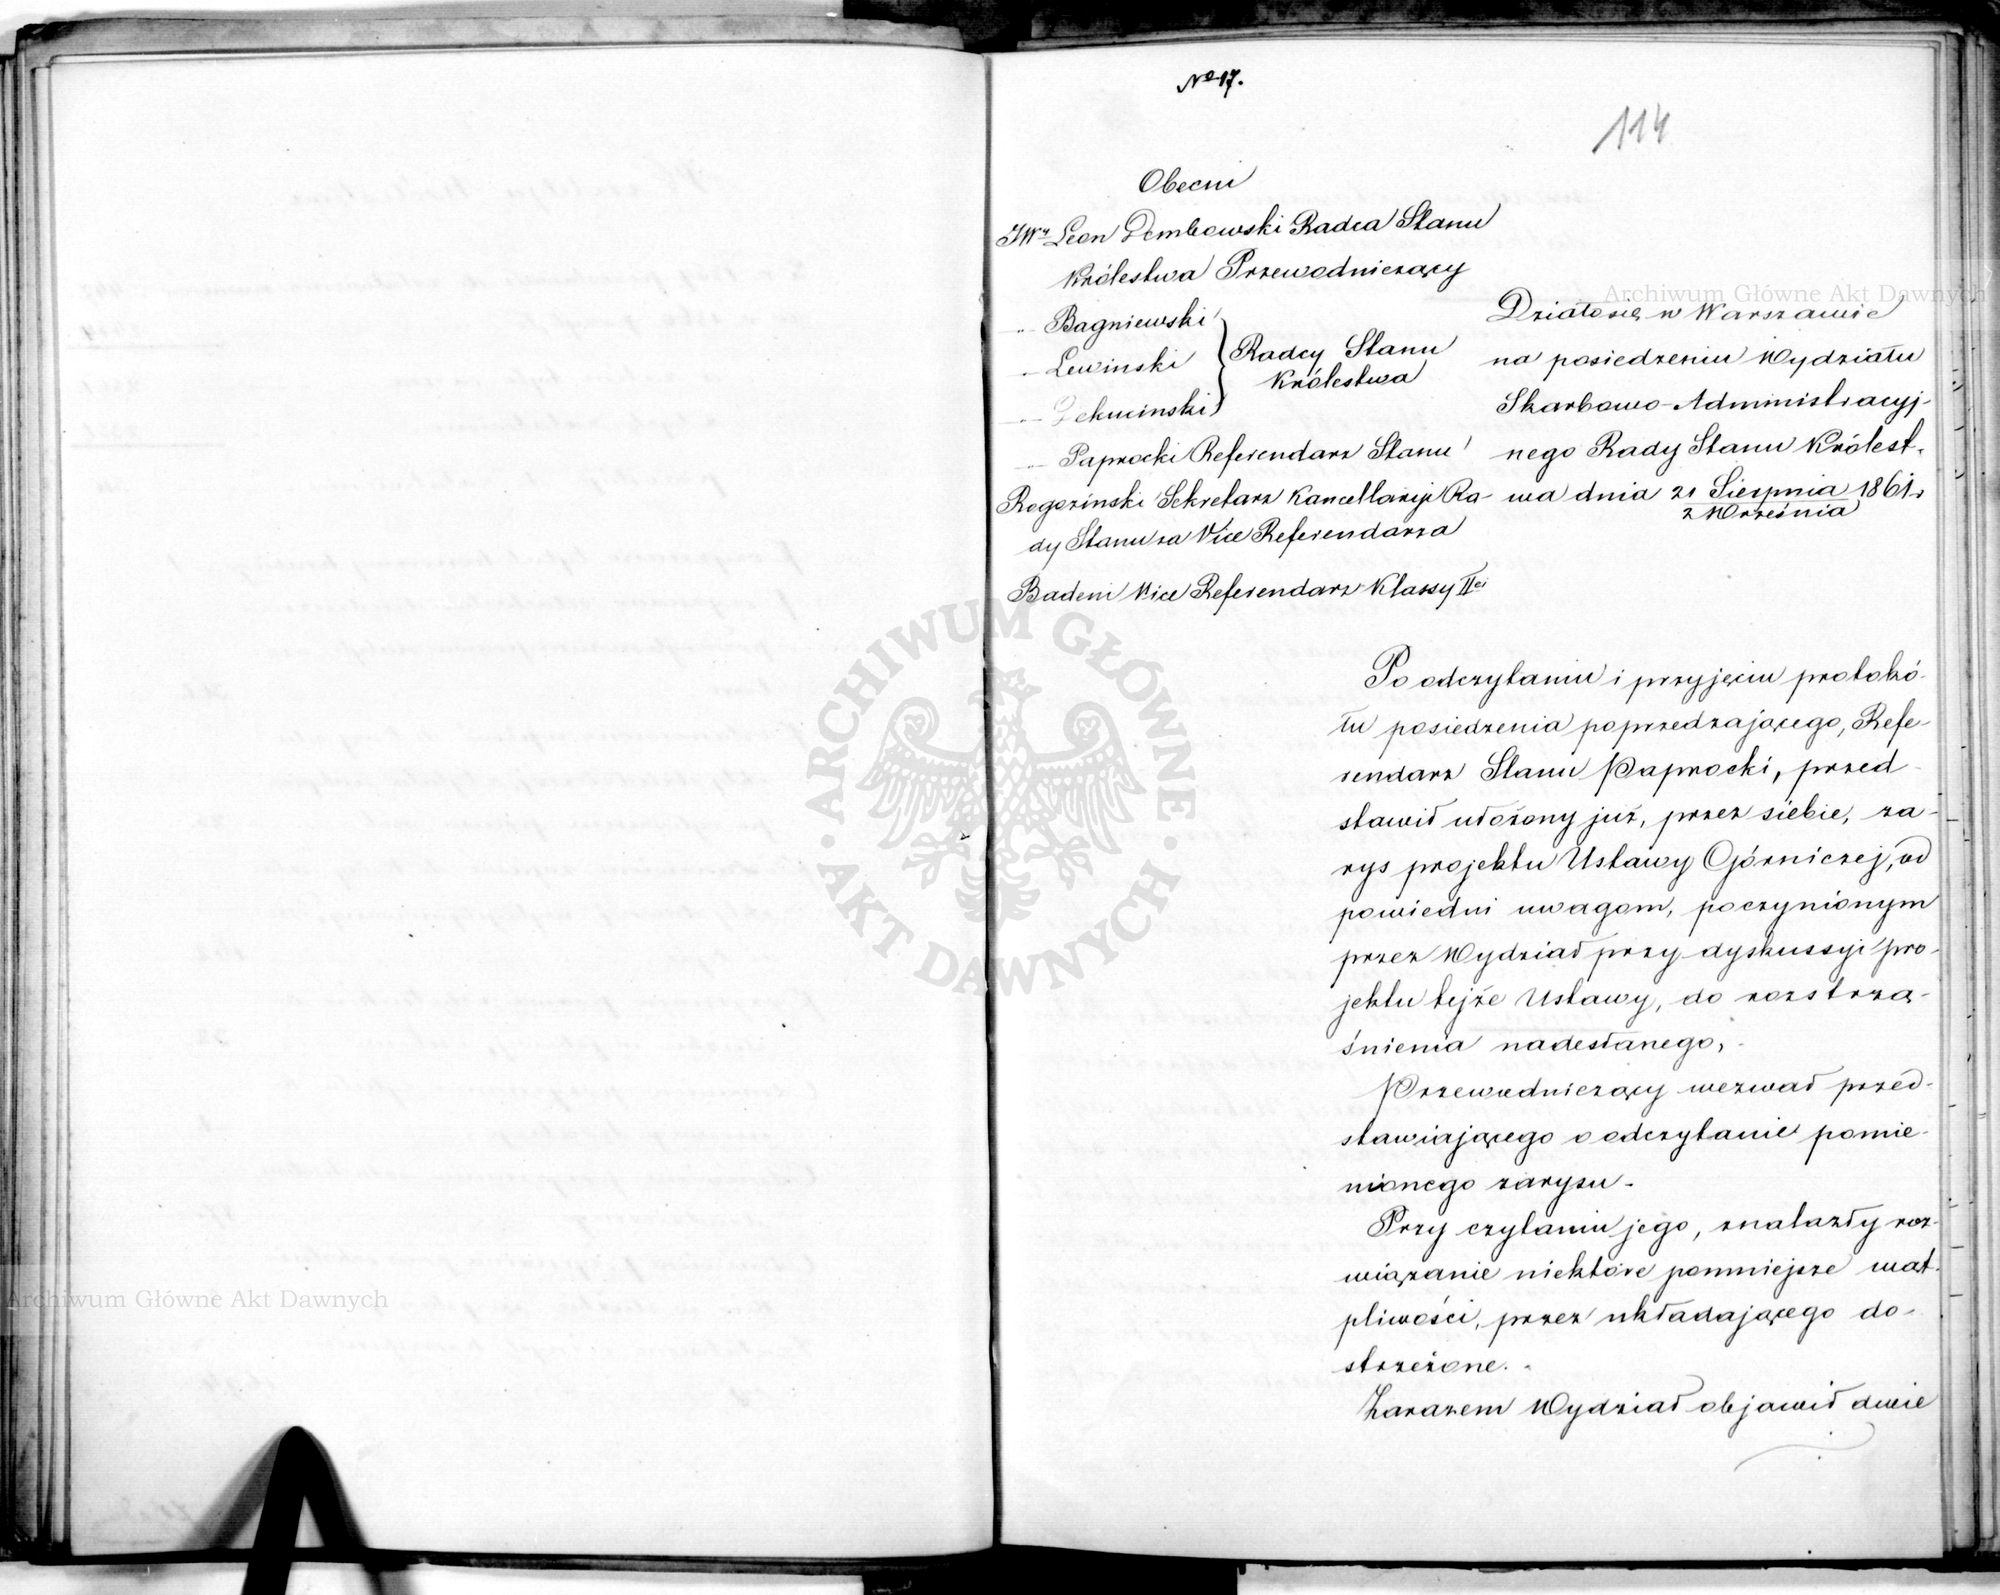 No 17.
114
Obecni
JWy Leon Dembowski Radca Stanu
Królestwa Przewodniczący
" Bagniewski
" Lewinski
" Dekucinski
Radcy Stanu
Królestwa
" Paprocki Referendarz Stanu
Rogozinski Sekretarz Kancellaryi Ra-
dy Stanu za Vice Referendarza
Badeni Vice Referendarz Klassy IIej
Działo się w Warszawie
na posiedzeniu Wydziału
Skarbowo-Administracyj-
nego Rady Stanu Królest-
wa dnia 21 Sierpnia 1861 r
2 Września
Po odczytaniu i przyjęciu protokó-
łu posiedzenia poprzedzającego, Refe-
rendarz Stanu Paprocki, przed-
stawił ułożony już, przez siebie, za-
rys projektu Ustawy Górniczej, od
powiedni uwagom, poczynionym
przez Wydział przy dyskussyi pro-
jektu tejże Ustawy, do rozstrzą-
śnienia nadesłanego,
Przewodniczący wezwał przed-
stawiającego o odczytanie pomie-
nionego zarysu.
Przy czytaniu jego, znalazły roz-
wiązanie niektóre pomniejsze wąt-
pliwości, przez układającego do-
strzeżone.
Zarazem Wydział objawił dwie
Archiwum Główne Akt Dawnych
ARCHIWUM GŁÓWNE
AKT DAWNYCH
Archiwum Główne Akt Dawnych